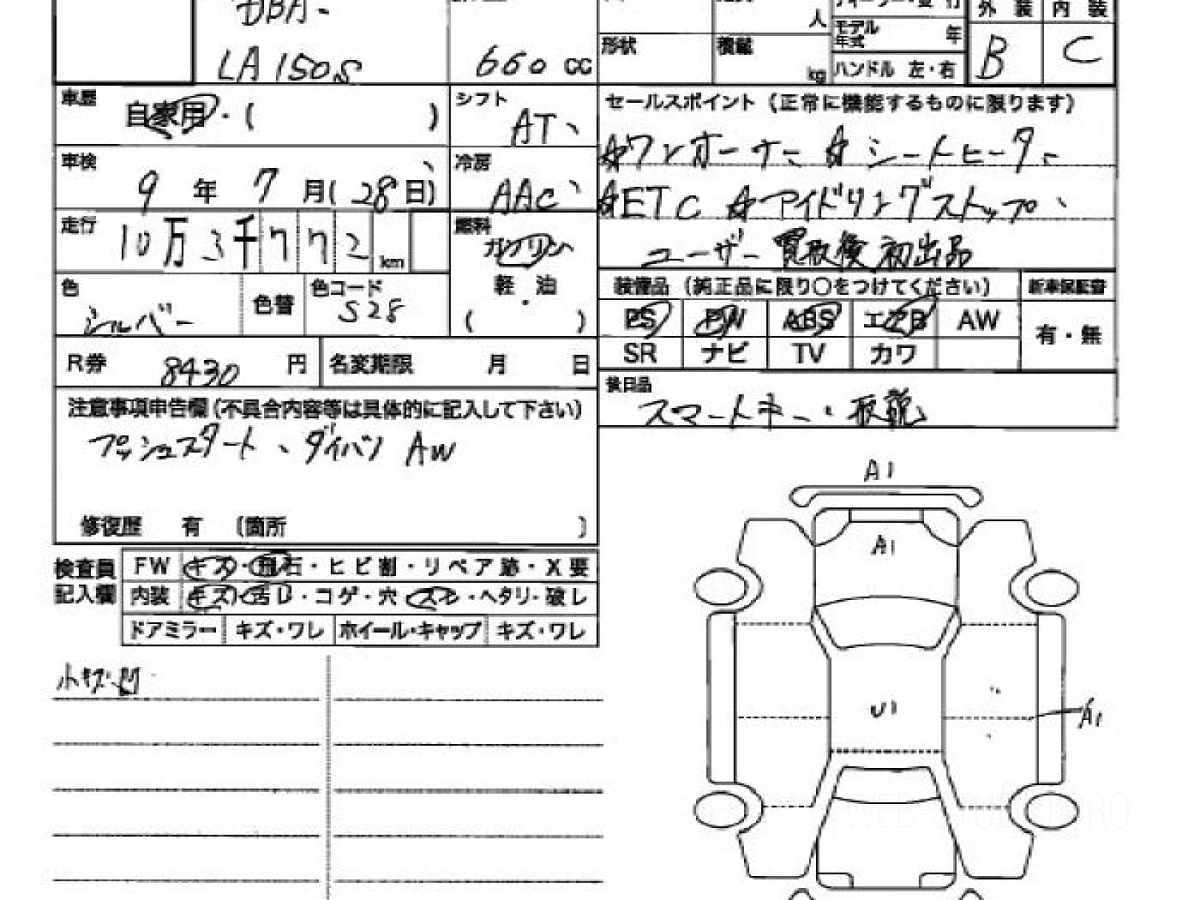 DBA-
LA150S
660 cc
人
形状
積載
kg
モデル年式
年
ハンドル 左・右
外装 内装
B
C
車歴
自家用・( )
シフト
AT
セールスポイント (正常に機能するものに限ります)
☆ワンオーナー ☆シートヒーター
車検
9年7月(28日)
冷房
AAC
☆ETC ☆アイドリングストップ
走行
10万3千772km
燃料
ガソリン
軽・油
( )
ユーザー買取後初出品
色
シルバー
色替
色コード
S28
装備品 (純正品に限り○をつけてください)
新車保証書
PS PW ABS エアB AW
有・無
SR ナビ TV カワ
R券
8430円
名変期限 月 日
後日品
スマートキー、取説
注意事項申告欄(不具合内容等は具体的に記入して下さい)
プッシュスタート、ダイハツAW
修復歴 有 (箇所 )
検査員記入欄
FW キズ・飛石・ヒビ割・リペア跡・X要
内装 キズ・汚レ・コゲ・穴・スレ・ヘタリ・破レ
ドアミラー キズ・ワレ ホイール・キャップ キズ・ワレ
小キズ・凹
A1
A1
U1
A1